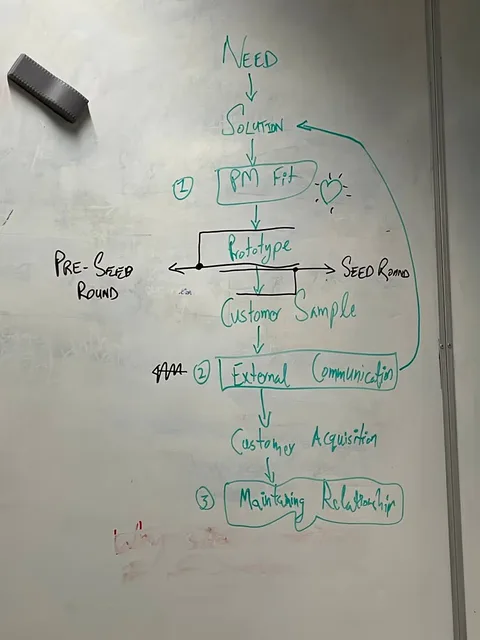 NEED
SOLUTION
1 PM Fit
Prototype
PRE-SEED
ROUND
SEED ROUND
Customer Sample
2 External Communication
Customer Acquisition
3 Maintaining Relationship